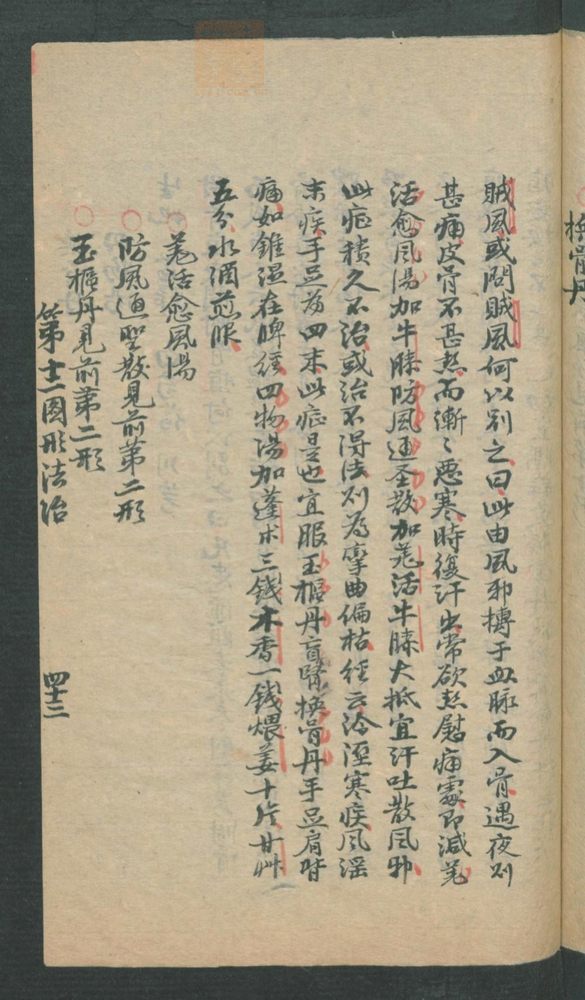 換骨丹
賊風或問賊風何以別之曰此由風邪搏于血脉而入骨遇夜則
甚痛皮骨不甚熱而漸〻惡寒時復汗出常欲熱慰痛處即減羌
活愈風湯加牛膝防風通圣散加羌活牛膝大抵宜汗吐散風邪
此症積久不治或治不得法則為孿曲偏枯經云冷溼寒疾風滛
末疾手足為四末此症是也宜服玉樞丹盲腎換骨丹手足肩背
痛如錐溼在脾經四物湯加蓬朮三錢木香一錢煨姜十片甘艸
五分水酒煎服
羌活愈風湯
防風通聖散見前第二形
玉樞丹見前第二形
第十二圖形法治
四十二